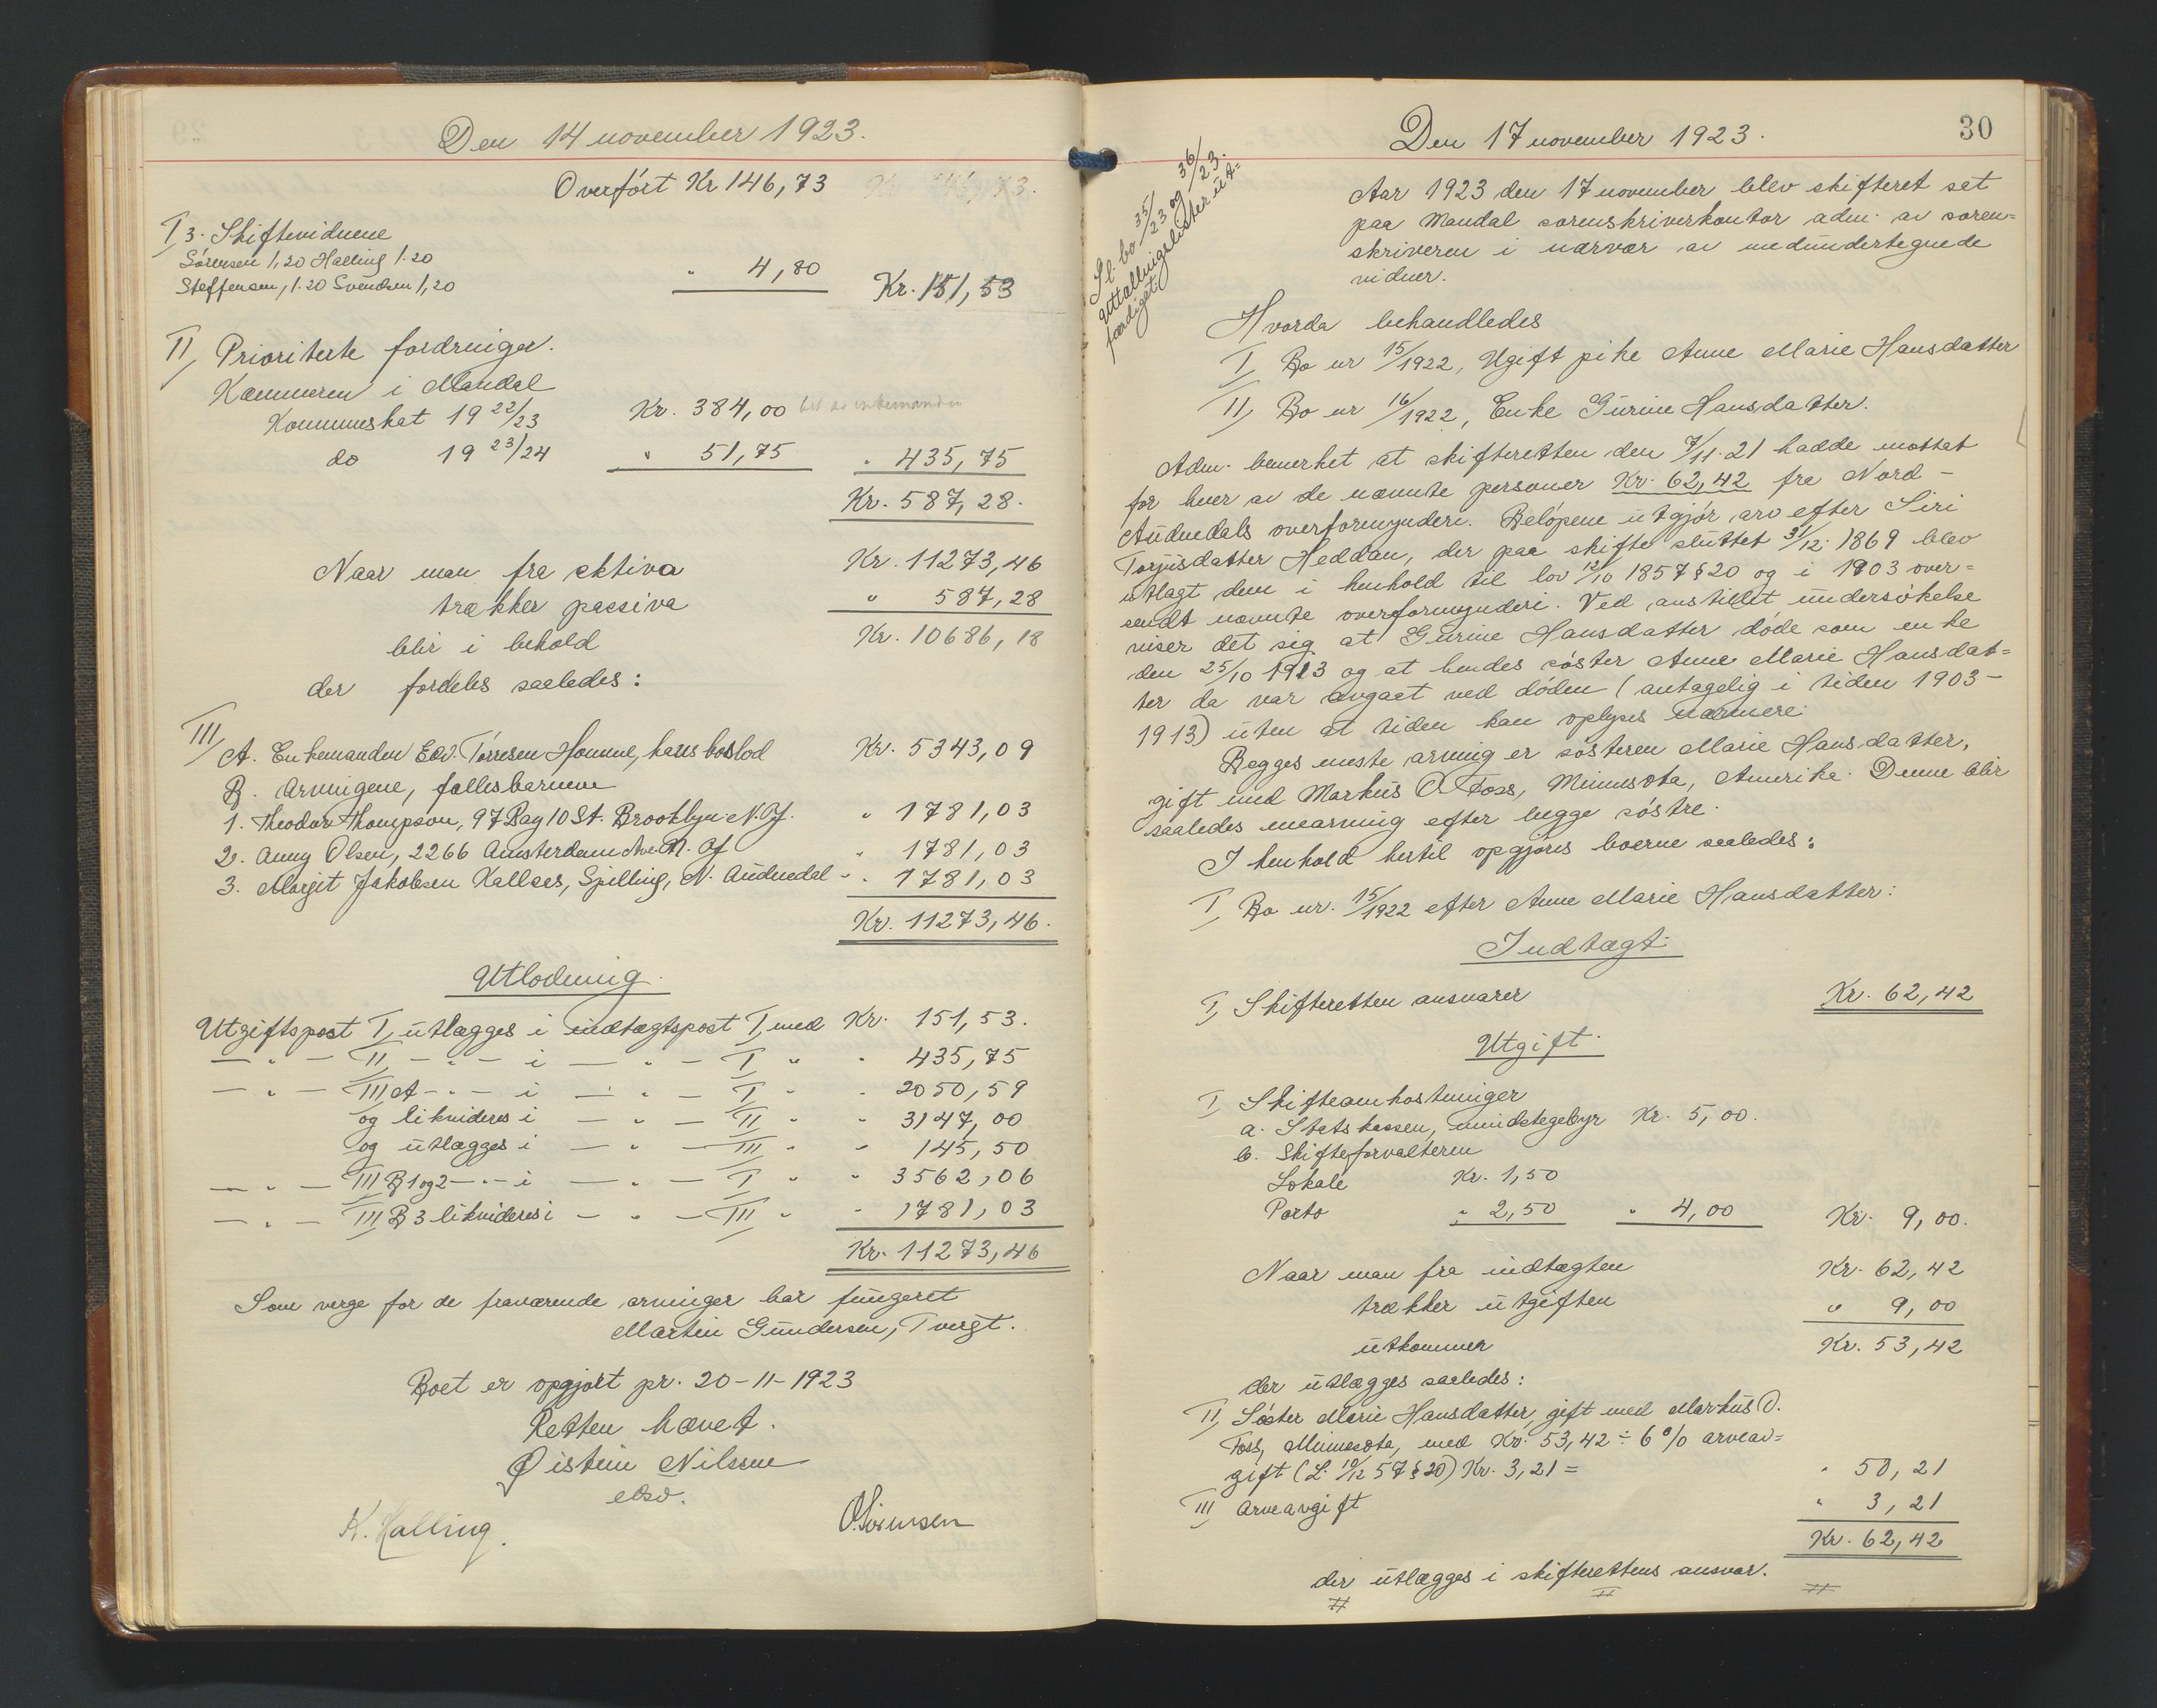 Den 14 november 1923.
Overført Kr 146,73
I, 3. Skiftevidnene
Sörensen 1,20 Halling 1.20
Steffensen, 1.20 Svendsen 1,20 " 4,80 Kr. 151,53
II, Prioriterte fordringer.
Kæmneren i Mandal
Kommuneskat 19 22/23 Kr. 384,00
do 19 23/24 " 51,75 " 435,75
Kr. 587,28.
Naar man fra aktiva Kr. 11273,46
trækker passiva " 587,28
blir i behold Kr. 10686,18
der fordeles saaledes:
III, A. Enkemanden Edv. Törresen Homme, hans boslod Kr. 5343,09
B. Arvingene, fællesbarnene
1. Theodor Thompson, 97 Bay 10 St. Brooklyn N.Y. " 1781,03
2. Anny Olsen, 2266 Amsterdam Ave. N. Y " 1781,03
3. Margit Jakobsen Kallaas, Spilling, N. Audnedal - " 1781,03
Kr. 11273,46.
Utlodning.
Utgiftspost I, utlægges i indtægtspost I, med Kr. 151,53.
— " — II — " — i — " — I " " 435,75
— " — III A — " — i — " — I " " 2050,59
og likvideres i — " — II " " 3147,00
og utlægges i — " — III " " 145,50
— " — III B 1 og 2 — " — i — " — I " " 3562,06
— " — III B 3 likvideres i — " — III " " 1781,03
Kr. 11273,46
Som verge for de fraværende arvinger har fungeret
Martin Gundersen, Tregt.
Boet er opgjort pr. 20-11-1923
Retten hævet.
Øistein Nilssen
edsv.
K. Halling. O Sörensen
Den 17 november 1923. 30
Sl. bo 35/23 og 36/23.
Uttællingslister ut-
færdiget.
Aar 1923 den 17 november blev skifteret sat
paa Mandal sorenskriverkontor adm. av soren-
skriveren i nærvær av medundertegnede
vidner.
Hvorda behandledes
I, Bo nr 15/1922, Ugift pike Anne Marie Hansdatter
II, Bo nr 16/1922, Enke Gurine Hansdatter.
Adm. bemerket at skifteretten den 7/11.21 hadde mottat
for hver av de nævnte personer Kr. 62,42 fra Nord-
Audnedals overformynderi. Beløpene utgjør arv efter Siri
Torjusdatter Heddan, der paa skifte sluttet 31/12. 1869 blev
utlagt dem i henhold til lov 12/10 1857 § 20 og i 1903 over-
sendt nævnte overformynderi. Ved anstillet undersøkelse
viser det sig at Gurine Hansdatter døde som enke
den 25/10 1913 og at hendes søster Anne Marie Hansdat-
ter da var avgaat ved døden (antagelig i tiden 1903-
1913) uten at tiden kan oplyses nærmere.
Begges næste arving er søsteren Marie Hansdatter,
gift med Markus O. Foss, Minnesota, Amerika. Denne blir
saaledes enearving efter begge søstre.
I henhold hertil opgjøres boerne saaledes:
I, Bo nr. 15/1922 efter Anne Marie Hansdatter:
Indtægt.
I, Skifteretten ansvarer Kr. 62,42
Utgift.
I, Skifteomkostninger
a. Statskassen, mindstegebyr Kr. 5,00.
b. Skifteforvalteren
Lokale Kr. 1,50
Porto " 2,50 " 4,00 Kr. 9,00.
Naar man fra indtægten Kr. 62,42
trækker utgiften " 9,00
utkommer Kr. 53,42
der utlægges saaledes:
II, Søster Marie Hansdatter, gift med Markus O.
Foss, Minnesota, med Kr. 53,42 ÷ 6 % arveav-
gift (L. 10/12 57 § 20) Kr. 3,21 = " 50,21
III, Arveavgift " 3,21
Kr. 62,42
der utlægges i skifterettens ansvar.